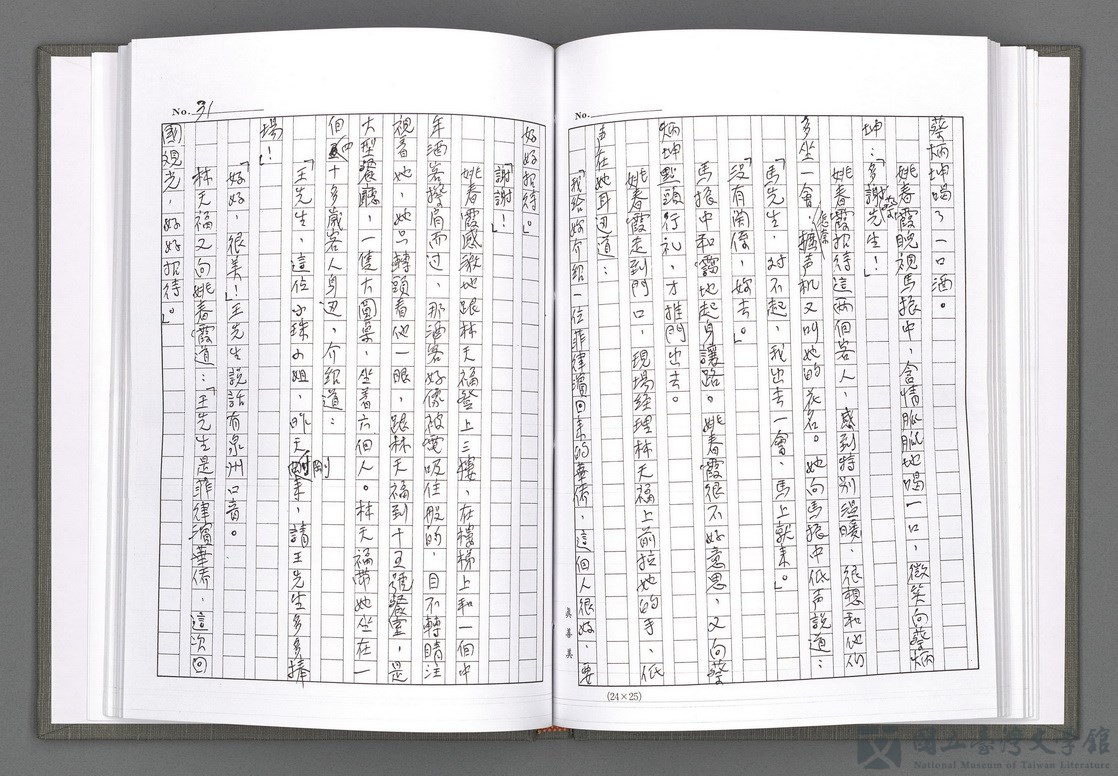 No.
蔡炳坤喝了一口酒。
姚春霞睨視馬振中，含情脈脈地喝一口，微笑向蔡炳
坤：「多謝蔡先生！」
姚春霞招待這兩個客人，感到特別溫暖，很想和他們
多坐一會，擴声机又叫她的花名。她向馬振中低声說道：
「馬先生，对不起，我出去一會，馬上就來。」
「沒有関係，妳去。」
馬振中和靄地起身讓路。姚春霞很不好意思，又向蔡
炳坤點頭行礼，才推門出去。
姚春霞走到門口，現場経理林天福上前拉她的手，低
声在她耳边道：
「我給妳介紹一位菲律濱回來的華僑，這個人很好，要
真善美
(24×25)
No. 31
好好招待。」
「謝謝！」
姚春霞感激地跟林天福登上三樓，在樓梯上和一個中
年酒客擦肩而过，那酒客好像被電吸住般的，目不轉睛注
視着她，她只轉頭看他一眼，跟林天福到十五號餐室，是
大型餐廳，一隻大圓桌，坐着六個人。林天福帶她坐在一
個四十多歲客人身边，介紹道：
「王先生，這位小珠小姐，昨天剛來，請王先生多多捧
場！」
「好好，很美！」王先生說話有泉州口音。
林天福又向姚春霞道：「王先生是菲律濱華僑，這次回
國观光，好好招待。」
國立臺灣文學館
National Museum of Taiwan Literature